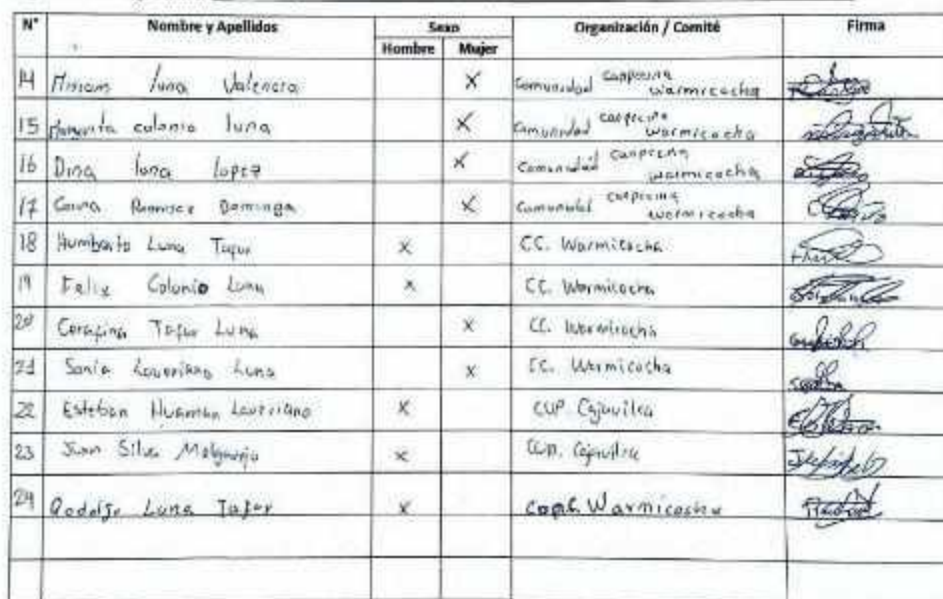 N° Nombre y Apellidos Sexo Organización / Comité Firma
Hombre Mujer
14 Miriam luna Valencia X Comunidad campesina warmicocha
15 Margarita colonia luna X Comunidad campesina warmicocha
16 Dina luna lopez X Comunidad campesina warmicocha
17 Dominga X Comunidad campesina warmicocha
18 Humberto Luna Tafur X CC. Warmicocha
19 Felix Colonio Luna X CC. Warmicocha
20 Cerafina Tafur Luna X CC. Warmicocha
21 Sonia Lauriano Luna X CC. Warmicocha
22 Esteban Huaman Lauriano X CUP. Cajavilca
23 Juan Silva Melgarejo X CUP. Cajavilca
24 Rodolfo Luna Tafur X Warmicocha